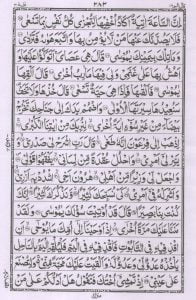 ٢٨٣
اِنَّ السَّاعَةَ اٰتِيَةٌ اَكَادُ اُخْفِيْهَا لِتُجْزٰى كُلُّ نَفْسٍۭ بِمَا تَسْعٰى
فَلَا يَصُدَّنَّكَ عَنْهَا مَنْ لَّا يُؤْمِنُ بِهَا وَاتَّبَعَ هَوٰىهُ فَتَرْدٰى
وَمَا تِلْكَ بِيَمِيْنِكَ يٰمُوْسٰى قَالَ هِيَ عَصَايَ اَتَوَكَّؤُا عَلَيْهَا وَ
اَهُشُّ بِهَا عَلٰى غَنَمِيْ وَلِيَ فِيْهَا مَاٰرِبُ اُخْرٰى قَالَ اَلْقِهَا
يٰمُوْسٰى فَاَلْقٰىهَا فَاِذَا هِيَ حَيَّةٌ تَسْعٰى قَالَ خُذْهَا وَلَا تَخَفْ
سَنُعِيْدُهَا سِيْرَتَهَا الْاُوْلٰى وَاضْمُمْ يَدَكَ اِلٰى جَنَاحِكَ تَخْرُجْ
بَيْضَآءَ مِنْ غَيْرِ سُوْٓءٍ اٰيَةً اُخْرٰى لِنُرِيَكَ مِنْ اٰيٰتِنَا الْكُبْرٰى
اِذْهَبْ اِلٰى فِرْعَوْنَ اِنَّهٗ طَغٰى قَالَ رَبِّ اشْرَحْ لِيْ صَدْرِيْ وَ
يَسِّرْ لِيْٓ اَمْرِيْ وَاحْلُلْ عُقْدَةً مِّنْ لِّسَانِيْ يَفْقَهُوْا قَوْلِيْ
وَاجْعَلْ لِّيْ وَزِيْرًا مِّنْ اَهْلِيْ هٰرُوْنَ اَخِي اشْدُدْ بِهٖٓ اَزْرِيْ
وَاَشْرِكْهُ فِيْٓ اَمْرِيْ كَيْ نُسَبِّحَكَ كَثِيْرًا وَّنَذْكُرَكَ كَثِيْرًا اِنَّكَ
كُنْتَ بِنَا بَصِيْرًا قَالَ قَدْ اُوْتِيْتَ سُؤْلَكَ يٰمُوْسٰى وَلَقَدْ
مَنَنَّا عَلَيْكَ مَرَّةً اُخْرٰى اِذْ اَوْحَيْنَآ اِلٰٓى اُمِّكَ مَا يُوْحٰى اَنِ
اقْذِفِيْهِ فِي التَّابُوْتِ فَاقْذِفِيْهِ فِي الْيَمِّ فَلْيُلْقِهِ الْيَمُّ بِالسَّاحِلِ
يَاْخُذْهُ عَدُوٌّ لِّيْ وَعَدُوٌّ لَّهٗ وَاَلْقَيْتُ عَلَيْكَ مَحَبَّةً مِّنِّيْ وَلِتُصْنَعَ
عَلٰى عَيْنِيْ اِذْ تَمْشِيْٓ اُخْتُكَ فَتَقُوْلُ هَلْ اَدُلُّكُمْ عَلٰى مَنْ